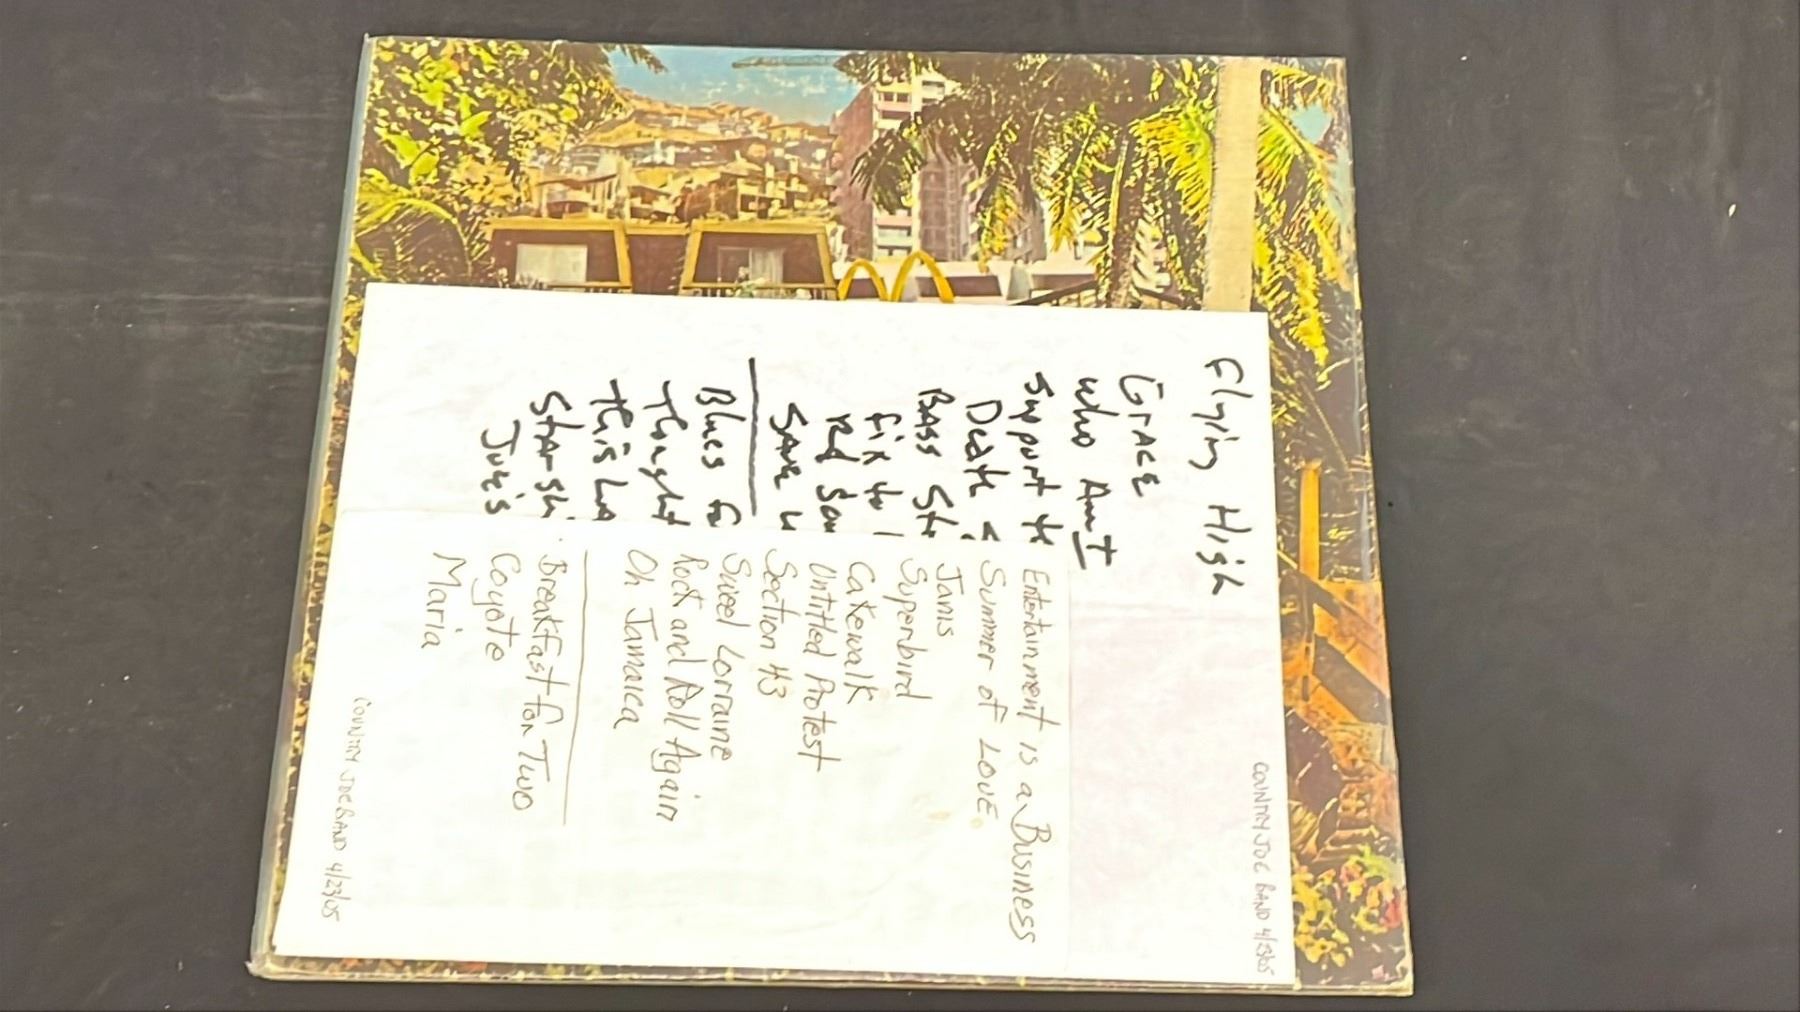 Flying High
GRACE
Who Am I
Support the
Death
BASS
Fix to
red
SAVE
Blues
Thought
This
Star
Joe's
COUNTRY JOE BAND 4/23/05
Entertainment is a Business
Summer of LOVE
Janis
Superbird
Cakewalk
Untitled Protest
Section 43
Sweet Lorraine
Rock and Roll Again
Oh Jamaica
Breakfast for Two
Coyote
Maria
COUNTRY JOE BAND 4/23/05